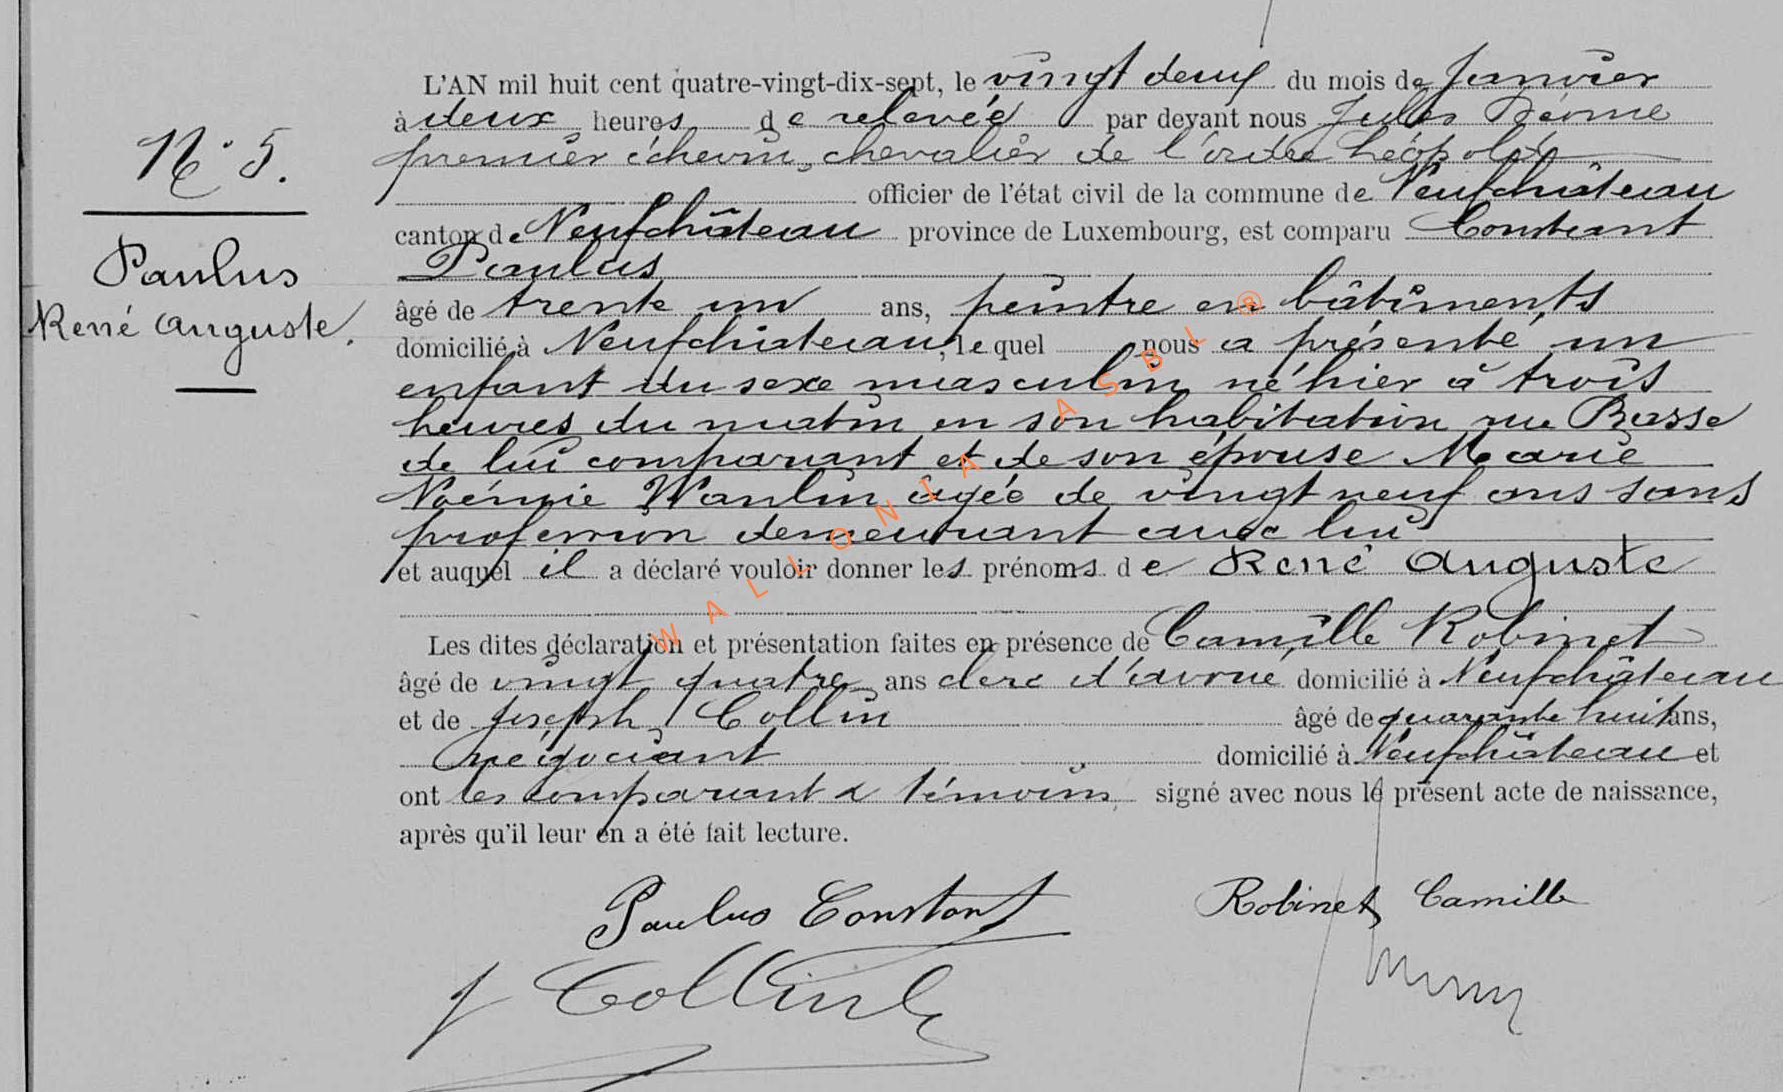 L'AN mil huit cent quatre-vingt-dix-sept, le vingt deux du mois de Janvier
à deux heures de relevée par devant nous Jules
premier échevin, chevalier de l'ordre Léopold,
officier de l'état civil de la commune de Neufchâteau
canton de Neufchâteau province de Luxembourg, est comparu Constant
Paulus
âgé de trente un ans, peintre en bâtiments
domicilié à Neufchâteau, lequel nous a présenté, un
enfant du sexe masculin, né hier à trois
heures du matin en son habitation rue Basse
de lui comparant et de son épouse Marie
Noémie Wanlin âgée de vingt neuf ans sans
profession demeurant avec lui
et auquel il a déclaré vouloir donner les prénoms de René Auguste
Les dites déclaration et présentation faites en présence de Camille Robinet
âgé de vingt quatre ans clerc d'avoué domicilié à Neufchâteau
et de Joseph Collin âgé de quarante huit ans,
négociant domicilié à Neufchâteau et
ont les comparant & témoins signé avec nous le présent acte de naissance,
après qu'il leur en a été fait lecture.
N° 5.
Paulus
René Auguste.
Paulus Constant
Robinet Camille
J Collin
WALLONIA ASBL ®